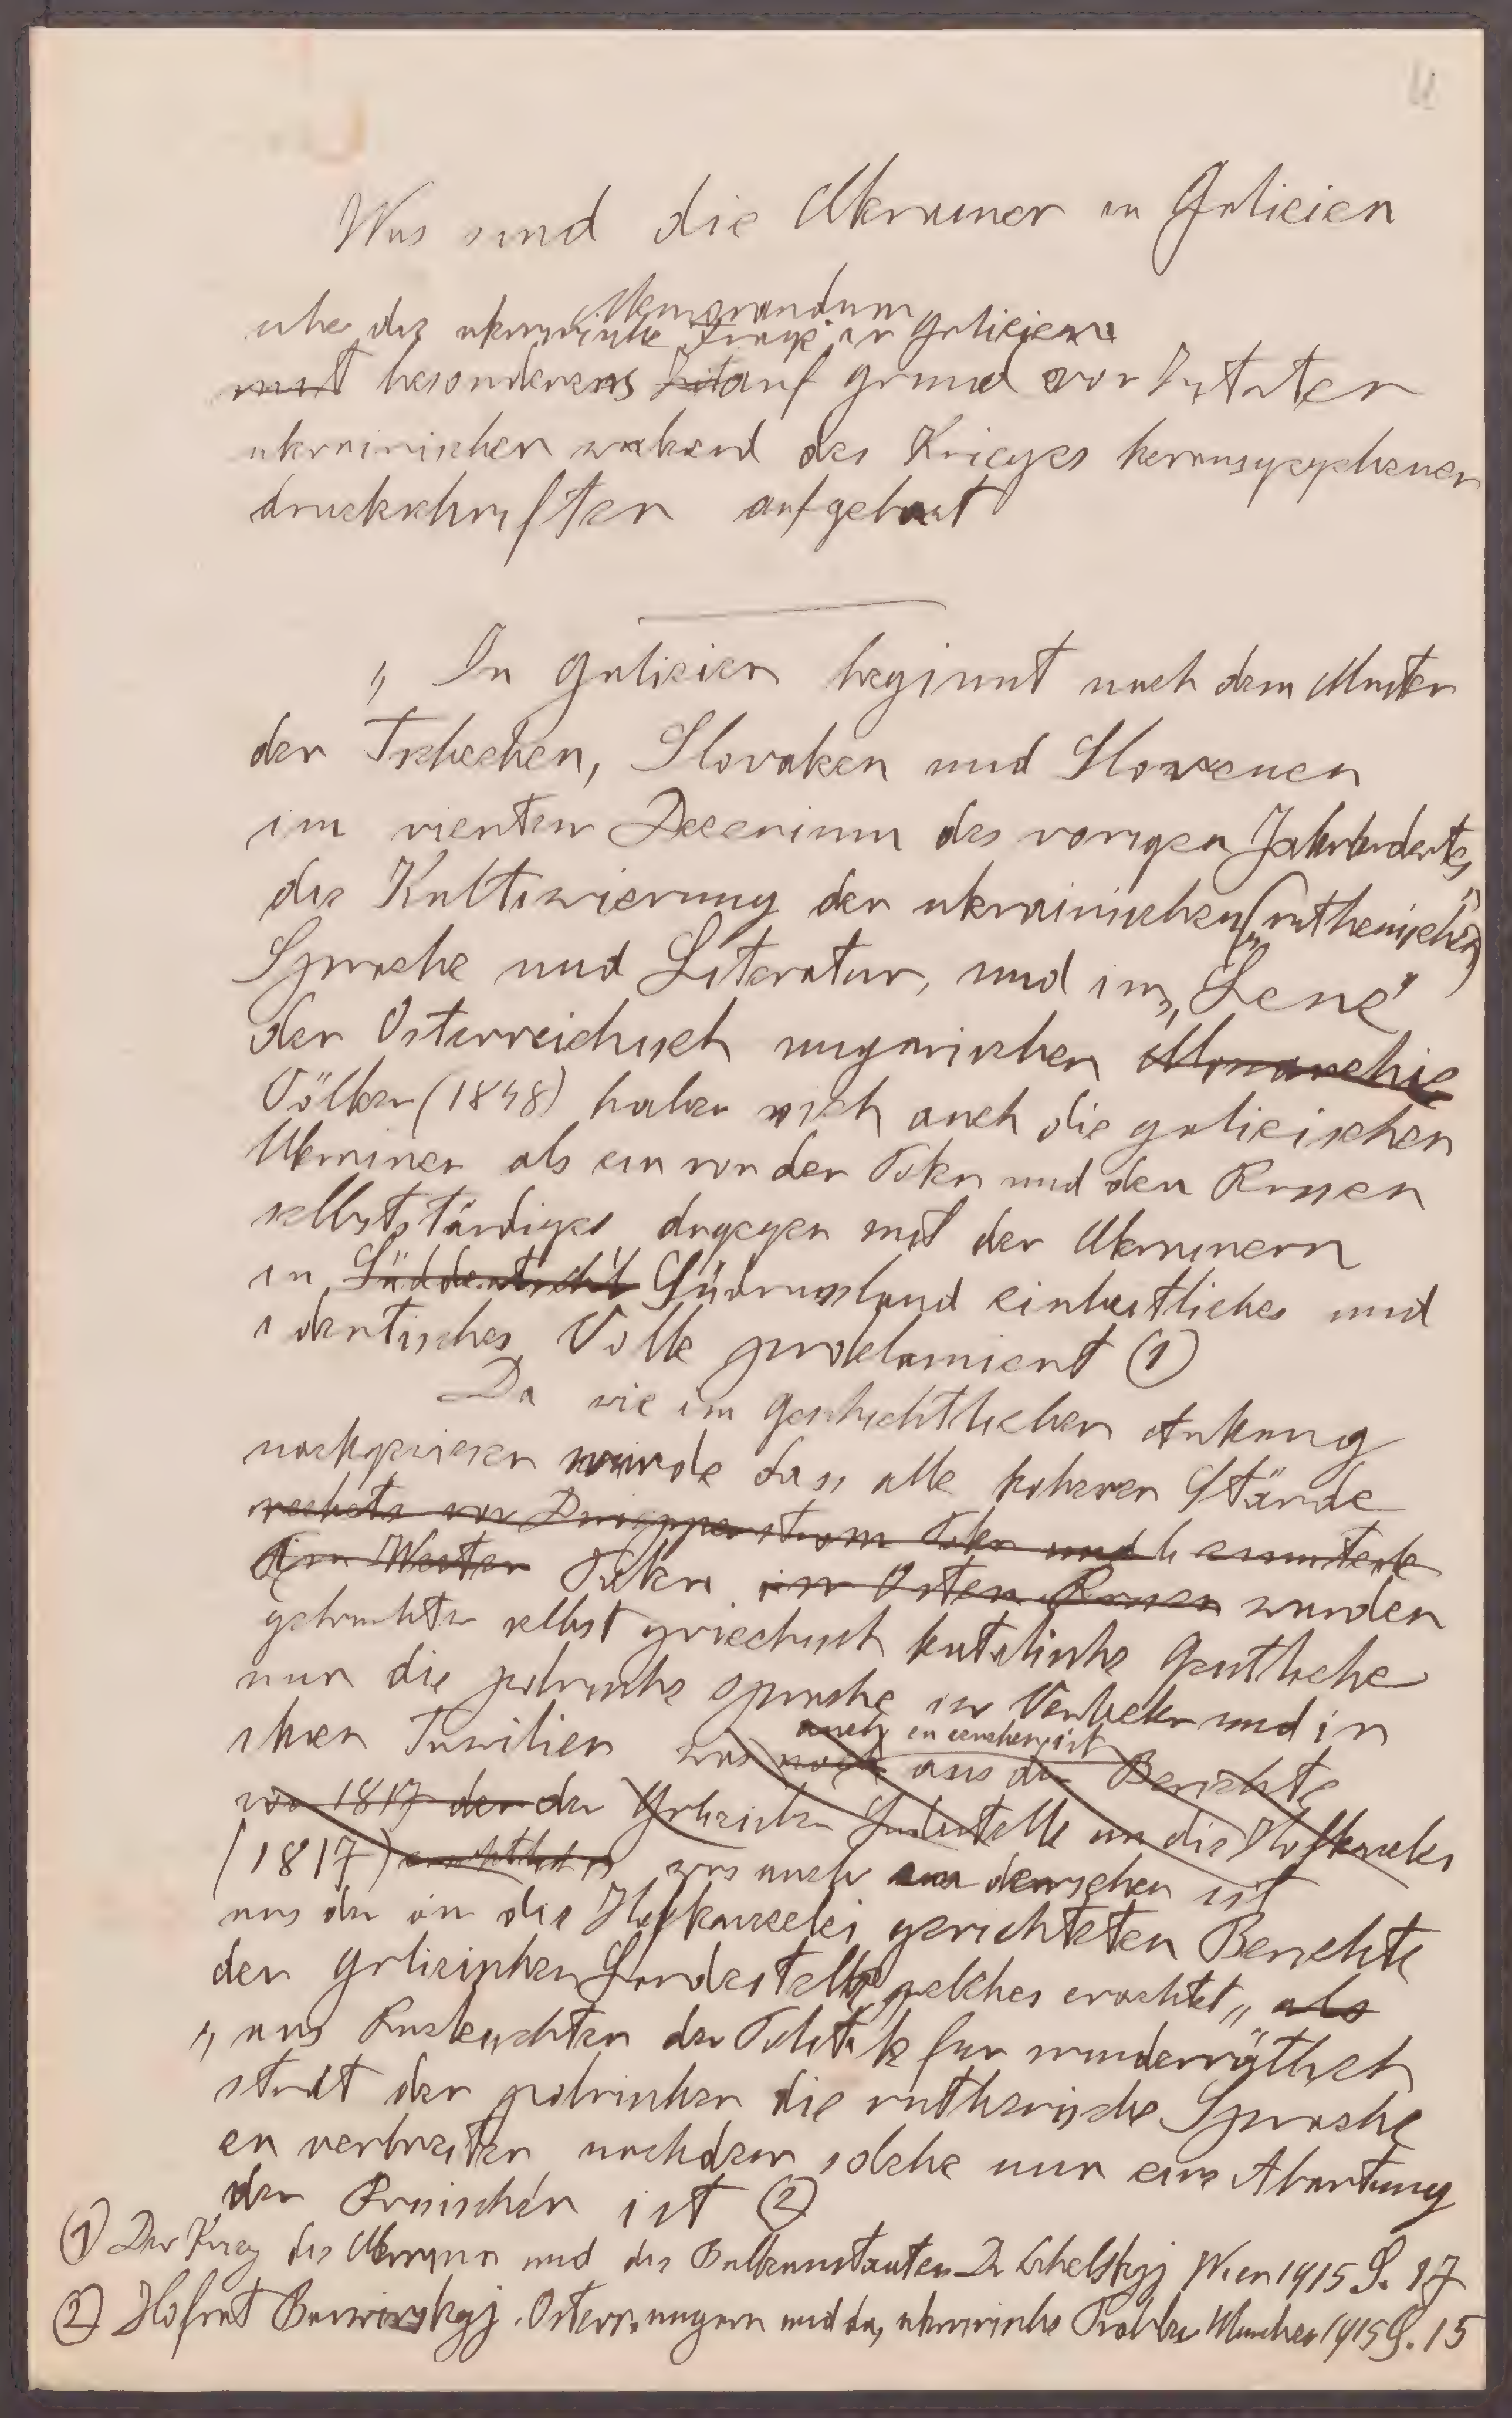 Was sind die Ukrainer in Galicien
Memorandum
uber die ukrainische Frage in Galicien
mit besonderens auf grund von Zitaten
ukrainischer wahrend des Krieges herausgegebener
druckschriften aufgebaut
„ In Galicien beginnt nach dem Muster
der Tschechen, Slovaken und Slovenen
im vierten Decenium des vorigen Jahrhundertes
die Kultivierung der ukrainischen („ruthenischen")
Sprache und Literatur, und im „Lenz"
der Österreichisch ungarischen Monarchie
Völker (1848) haben sich auch die galicischen
Ukrainer als ein von der Polen und den Russen
selbstständiges dagegen mit der Ukrainern
in Süddeutschl Südrussland einheitliches und
identisches Volk proklamiert (1)
Da wie im geschichtlichen Anhang
nachgewiesen wurde dass alle hoheren Stände
rechets von Dniepperstrom Polen und beamtete
im Westen Polen im Osten Russen wurden
gebrauchten selbst griechisch katolische Geistliche
nur die polnische Sprache in Verkehr und in
auch zu ersehen ist
ihren Familien was noch aus den Berichte
von 1817 der der Galicischen Landestelle an die Hofkanzlei
(1817) ersichtlich was auch zu ersehen ist
aus den an die Hofkanzelei gerichteten Berichte
der galicischen Landestelle welches erachtet „ als
„ aus Rucksichten der Politik fur minderräthlich
statt der polnischen die ruthenische Sprache
zu verbreiten nachdem solche nur eine Abartung
der Russischen ist (2)
(1) Der Krieg die Ukraina und die Balkanstaaten Dr Cehelskyj Wien 1915 S. 17
(2) Hofrat Barwinskyj Österr. ungarn und das ukrainische Problem Munchen 1915 S. 15